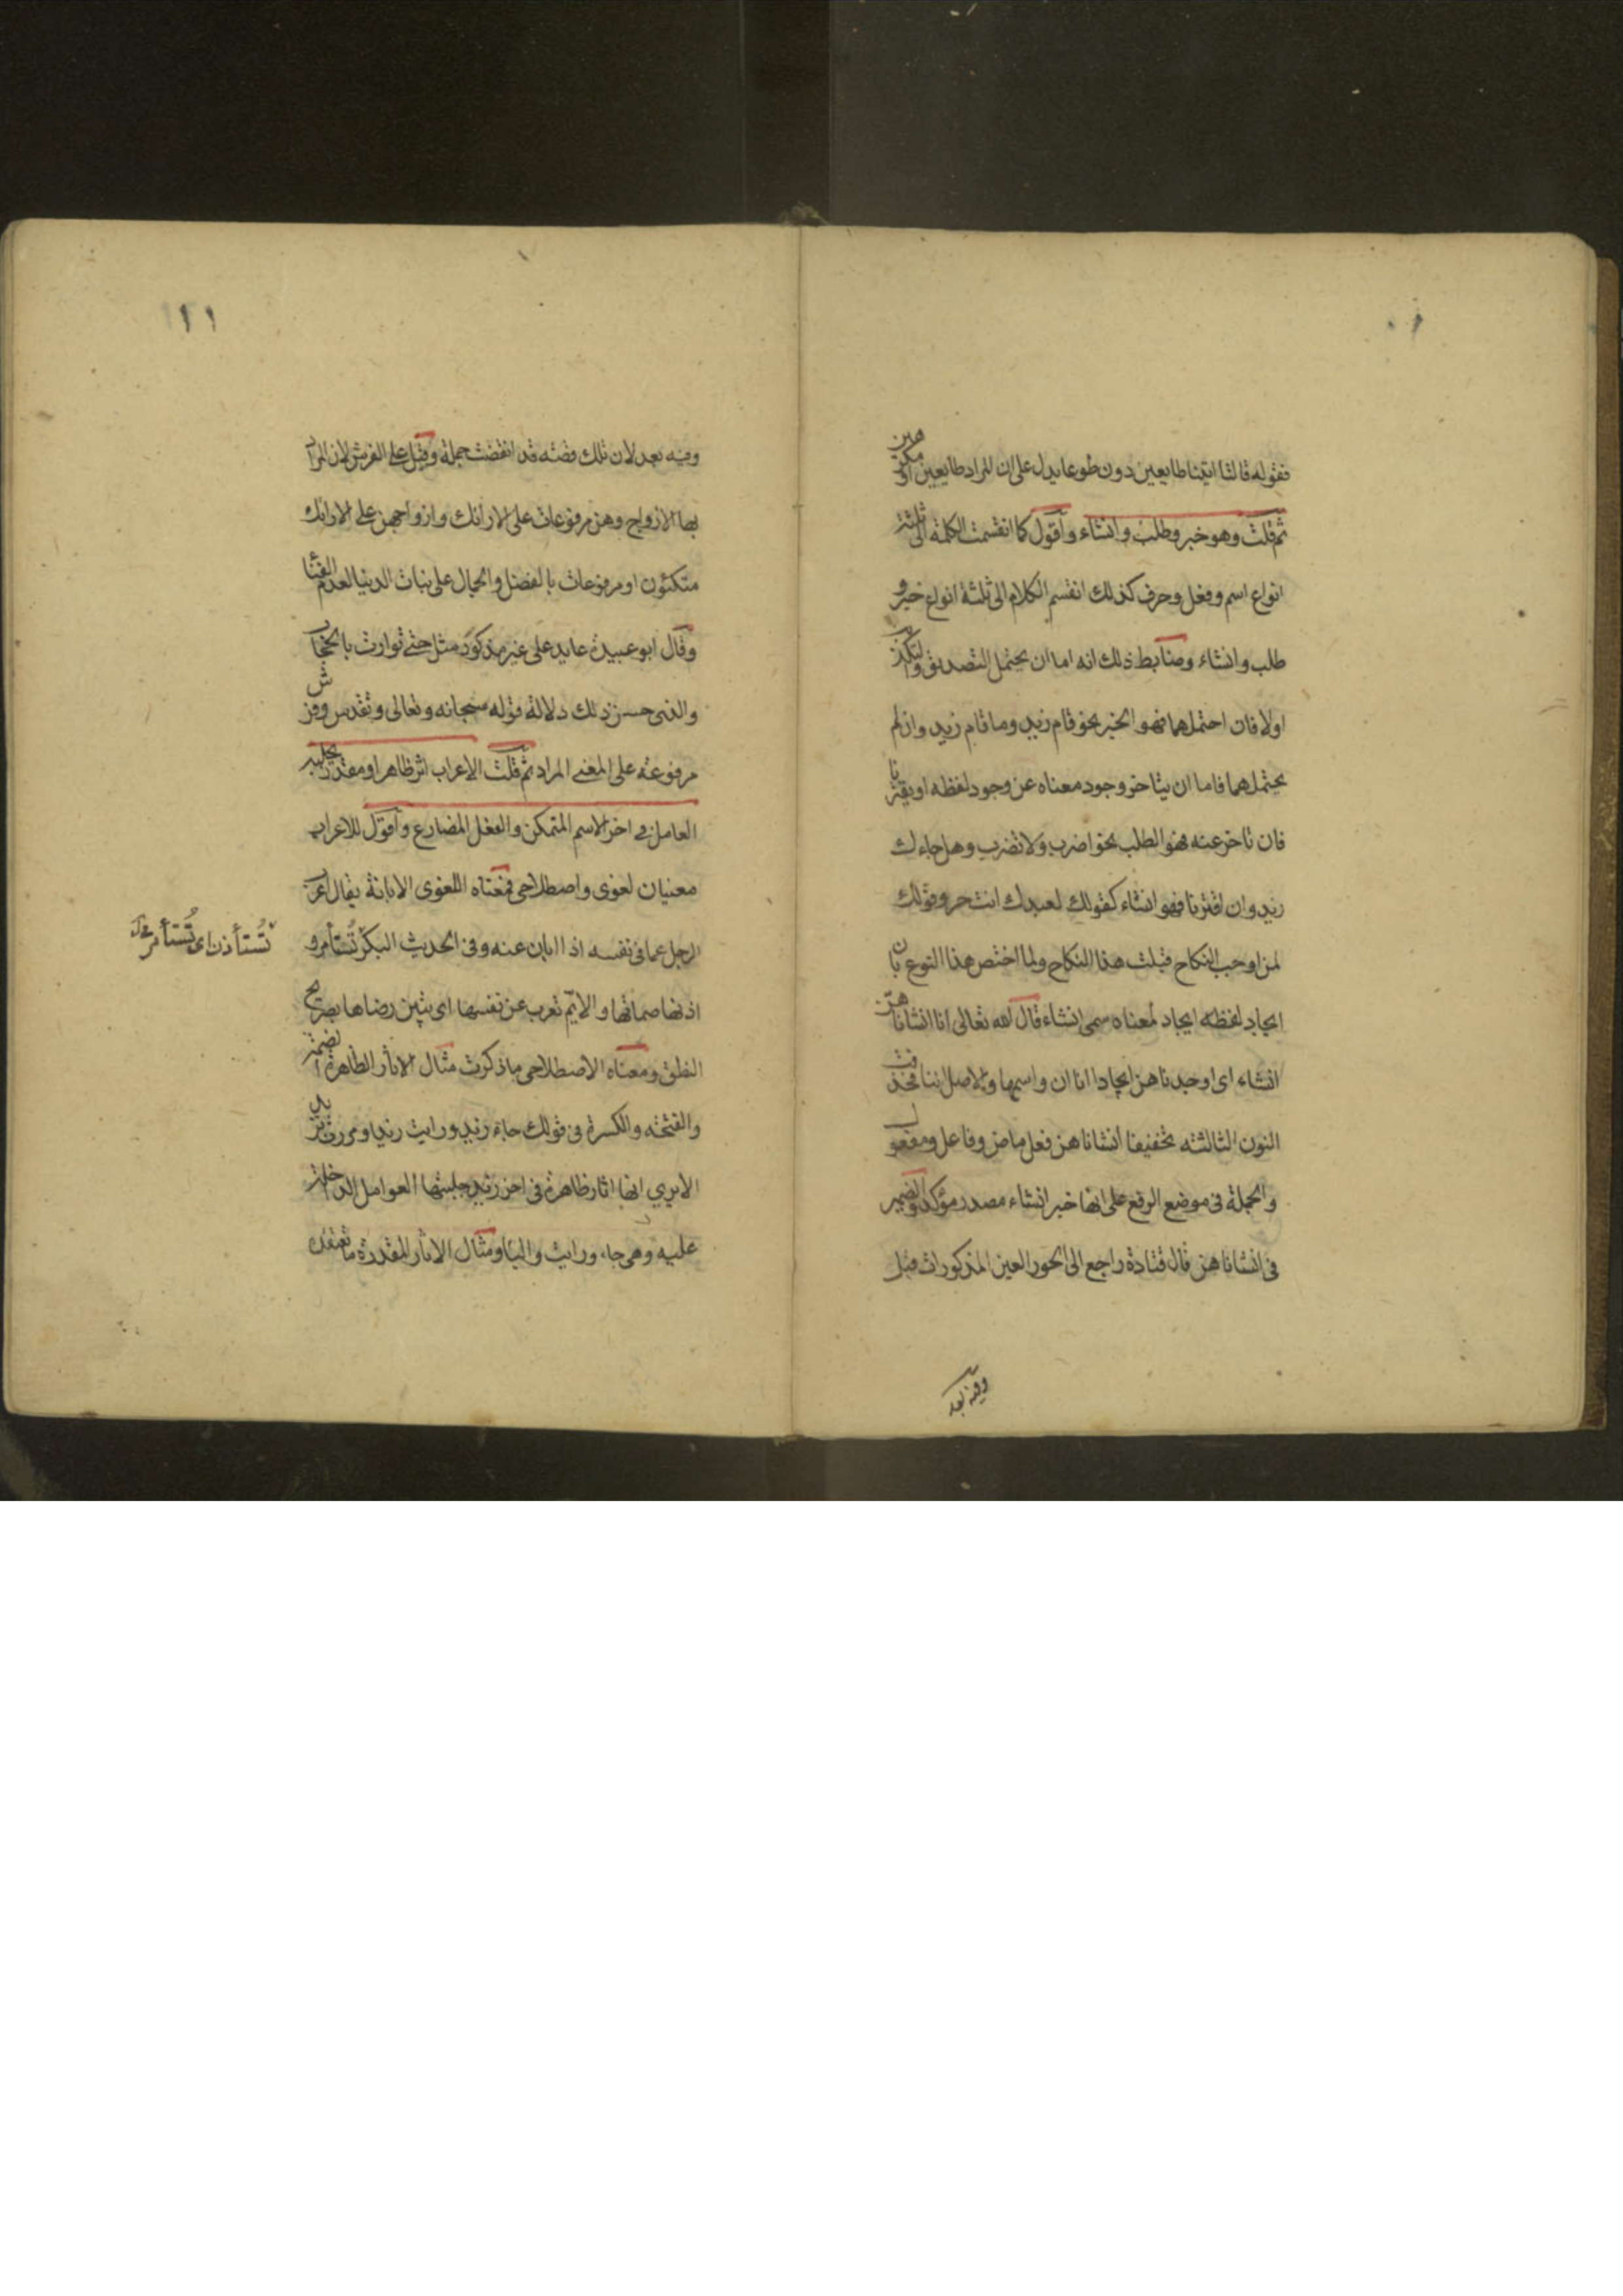 فقوله قالتا اتينا طايعين دون طوعا يدل على ان المراد طايعين او مكرهين
ثم قلت وهو خبر وطلب وانشاء واقول كما انقسمت الكلمة الى ثلثة
انواع اسم وفعل وحرف كذلك انقسم الكلام الى ثلثة انواع خبر و
طلب وانشاء وضابط ذلك انه اما ان يحتمل التصديق والتكذيب
اولا فان احتملهما فهو الخبر نحو قام زيد وما قام زيد وان لم
يحتملهما فاما ان يتاخر وجود معناه عن وجود لفظه او يقترنا
فان تاخر عنه فهو الطلب نحو اضرب ولا تضرب وهل جاءك
زيد وان اقترنا فهو انشاء كقولك لعبدك انت حر وقولك
لمن اوجب النكاح قبلت هذا النكاح ولما اختص هذا النوع بان
ايجاد لفظه ايجاد لمعناه سمى انشاء قال الله تعالى انا انشاناهن
انشاء اى اوجدناهن ايجادا انا ان واسمها والاصل اننا فحذفت
النون الثالثة تخفيفا انشاناهن فعل ماض وفاعل ومفعول
والجملة فى موضع الرفع على انها خبر ان انشاء مصدر مؤكد والضمير
فى انشاناهن قال قتادة راجع الى الحور العين المذكورات قبل
وفيه بعد
١١
وفيه بعد لان تلك قصته قد انقضت جملة وقيل على الفرش لان المراد
بها الازواج وهن مرفوعات على الارائك وازواجهن على الارائك
متكئون او مرفوعات بالفضل والجمال على بنات الدنيا العدم
وقال ابو عبيدة عايد على غير مذكور مثل حتى توارت بالحجاب
والذى حسن ذلك دلالة قوله سبحانه وتعالى وتقدس وفرش
مرفوعة على المعنى المراد ثم قلت الاعراب اثر ظاهر او مقدر يجلبه
العامل فى اخر الاسم المتمكن والفعل المضارع واقول للاعراب
معنيان لغوى واصطلاحى فمعناه اللغوى الابانة يقال اعرب
الرجل عما فى نفسه اذا ابان عنه وفى الحديث البكر تُستأمر و
تُستأذن اى تُستأمر
اذنها صماتها والايّم تعرب عن نفسها اى تبين رضاها بصريح
النطق ومعناه الاصطلاحى ما ذكرت مثال الاثار الظاهرة الضمة
والفتحة والكسرة فى قولك جاء زيد ورايت زيدا ومررت بزيد
الا يرى انها اثار ظاهرة فى اخر زيد جلبتها العوامل الداخلة
عليه وهى جاء ورايت والبا ومثال الاثار المقدرة ما تعتقده